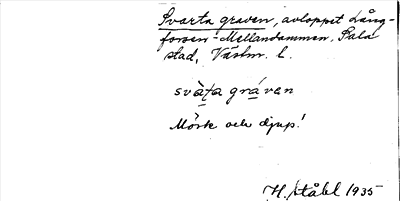 Svarta graven, avloppet Lång-
forsen - Mellandammen, Sala
stad, Västm. l.
svàṭa gráven
Mörk och djup!
H. Ståhl 1935